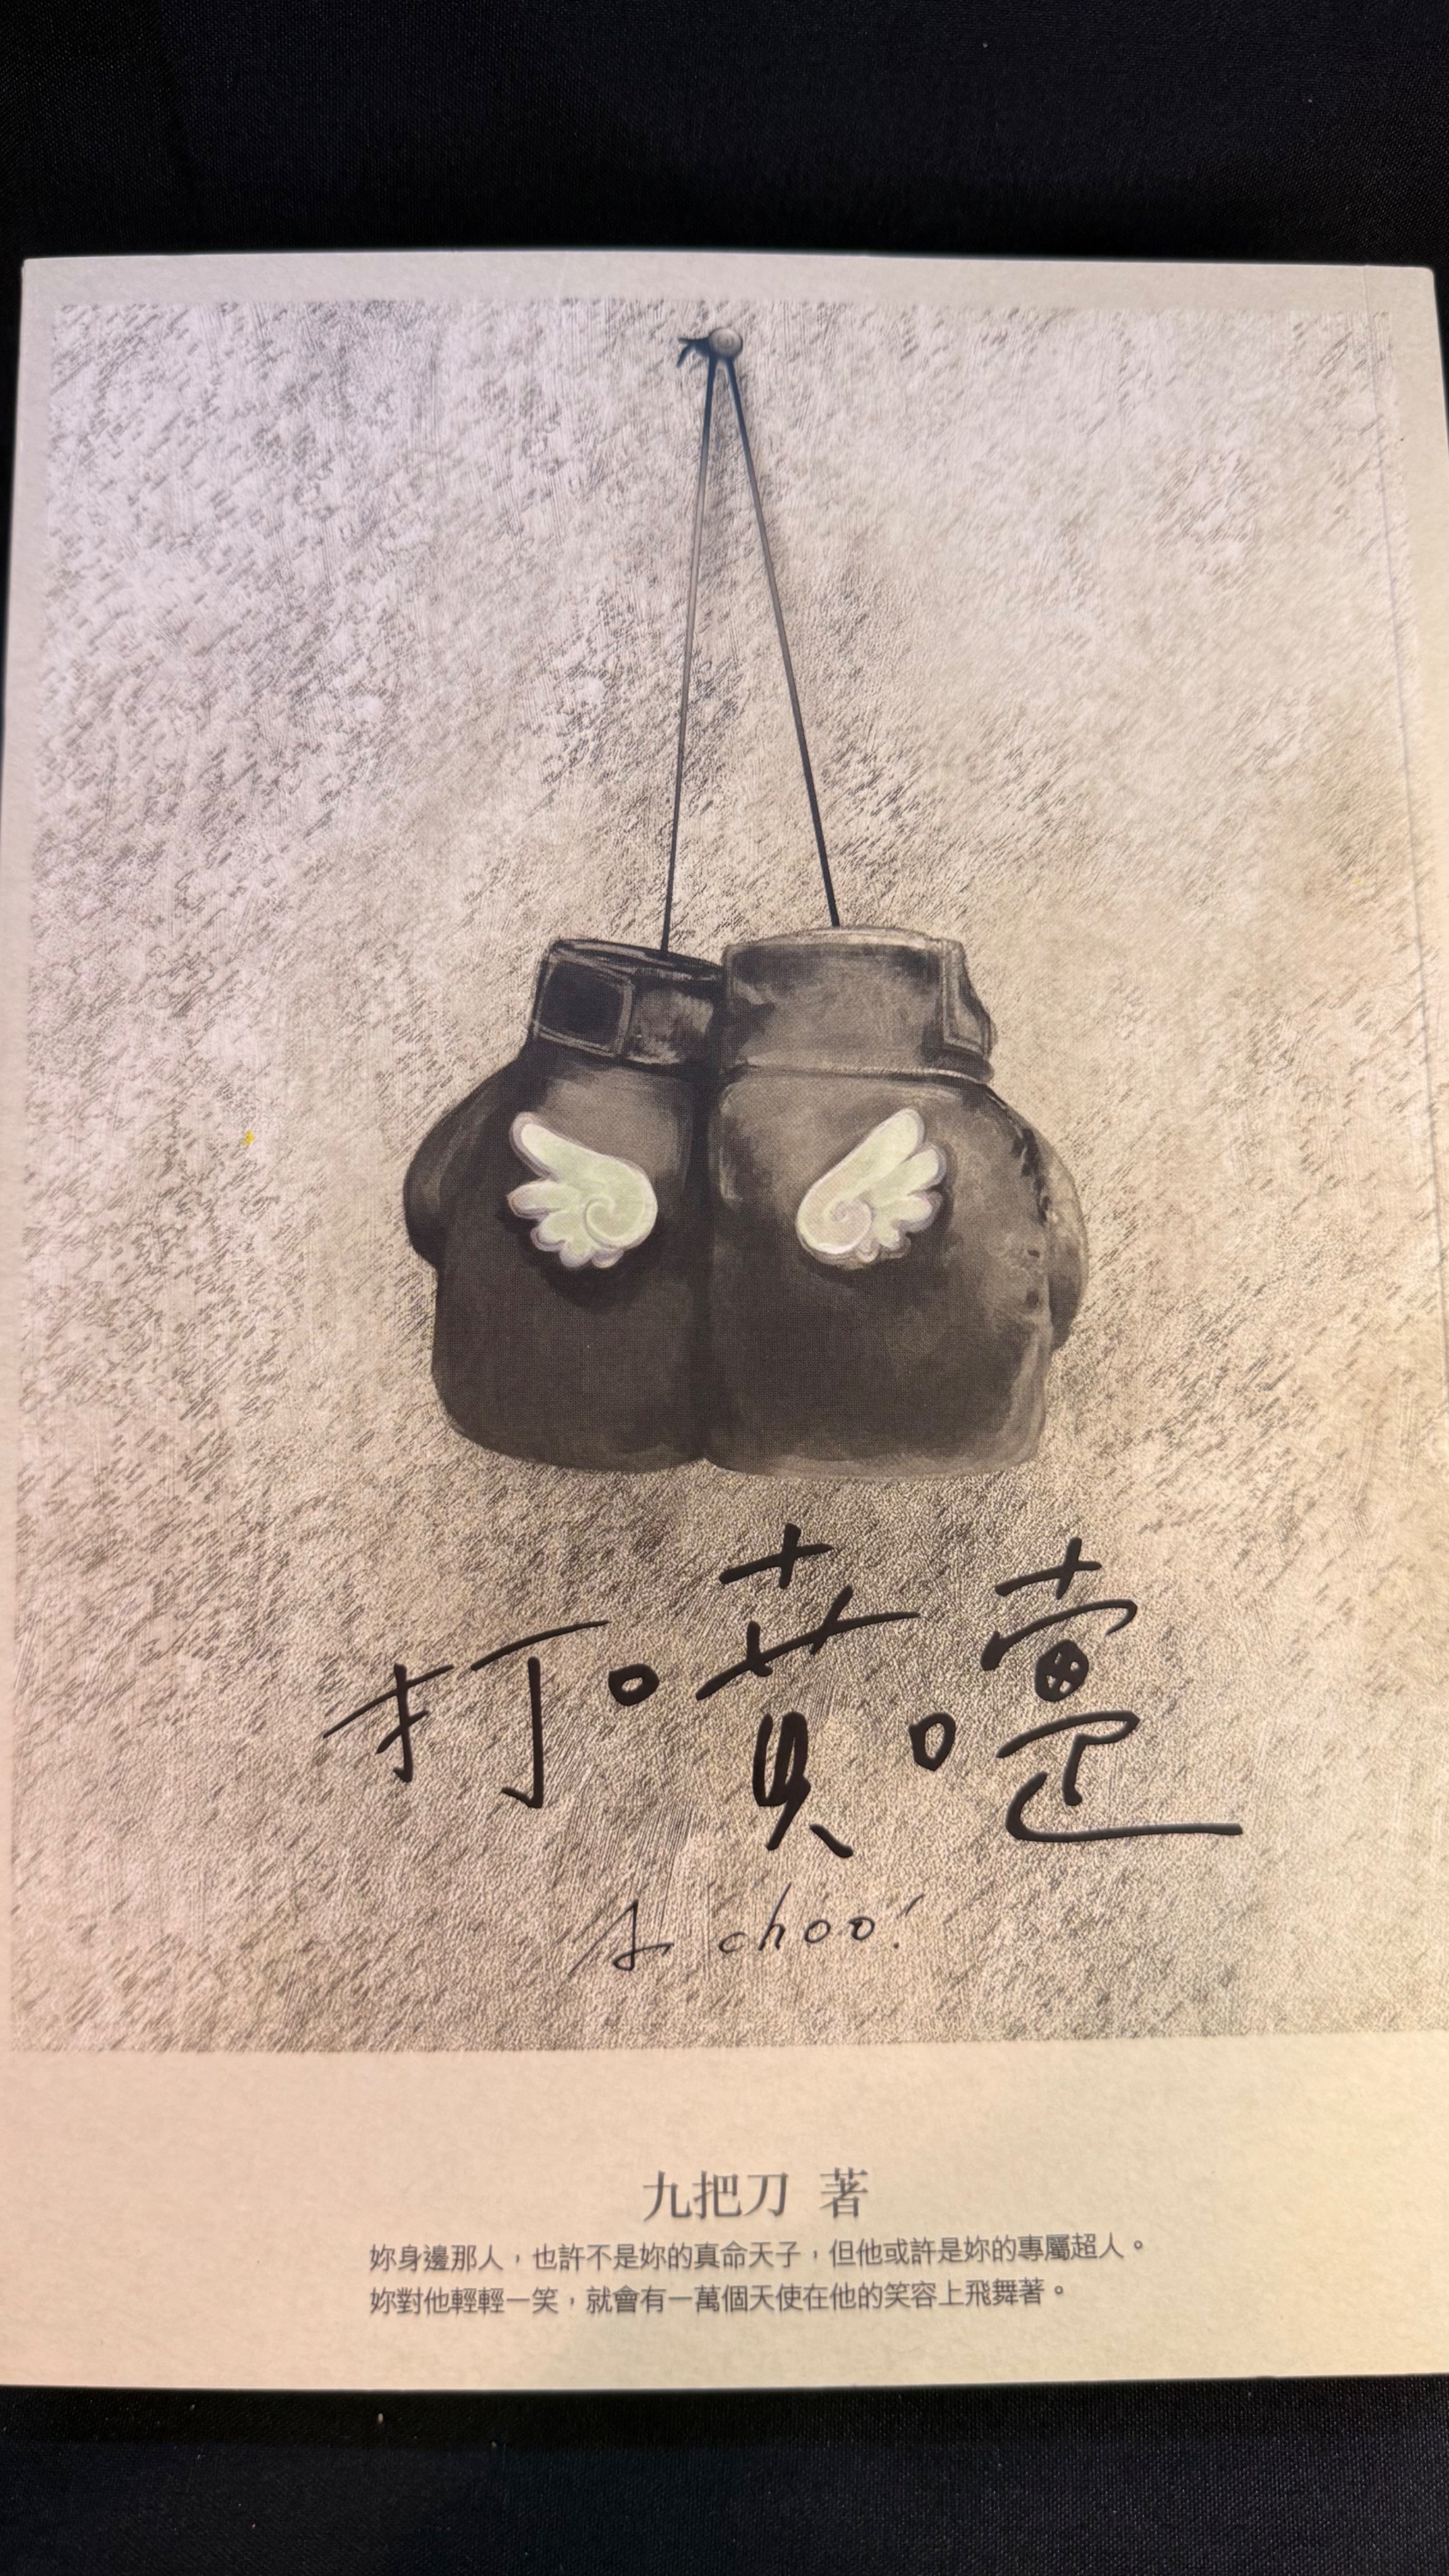 打噴嚏
A choo!
九把刀 著
妳身邊那人，也許不是妳的真命天子，但他或許是妳的專屬超人。
妳對他輕輕一笑，就會有一萬個天使在他的笑容上飛舞著。